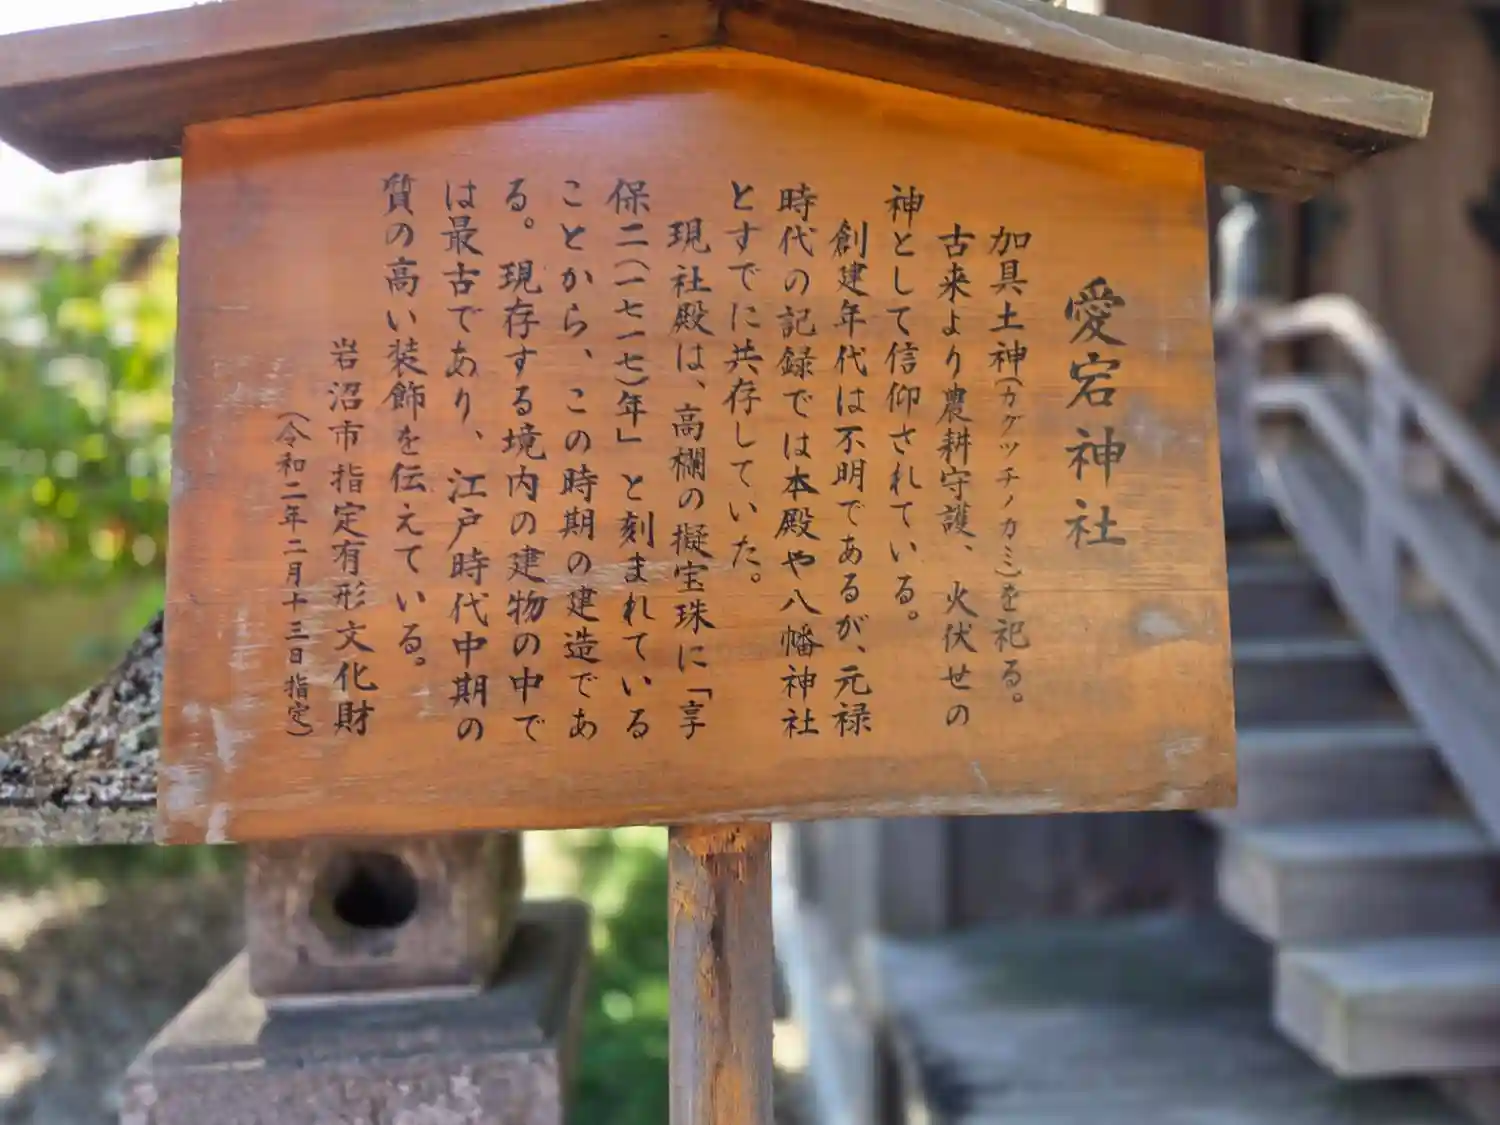 愛宕神社
加具土神（カグツチノカミ）を祀る。
古来より農耕守護、火伏せの
神として信仰されている。
創建年代は不明であるが、元禄
時代の記録では本殿や八幡神社
とすでに共存していた。
現社殿は、高欄の擬宝珠に「享
保二（一七一七）年」と刻まれている
ことから、この時期の建造であ
る。現存する境内の建物の中で
は最古であり、江戸時代中期の
質の高い装飾を伝えている。
岩沼市指定有形文化財
（令和二年二月十三日指定）